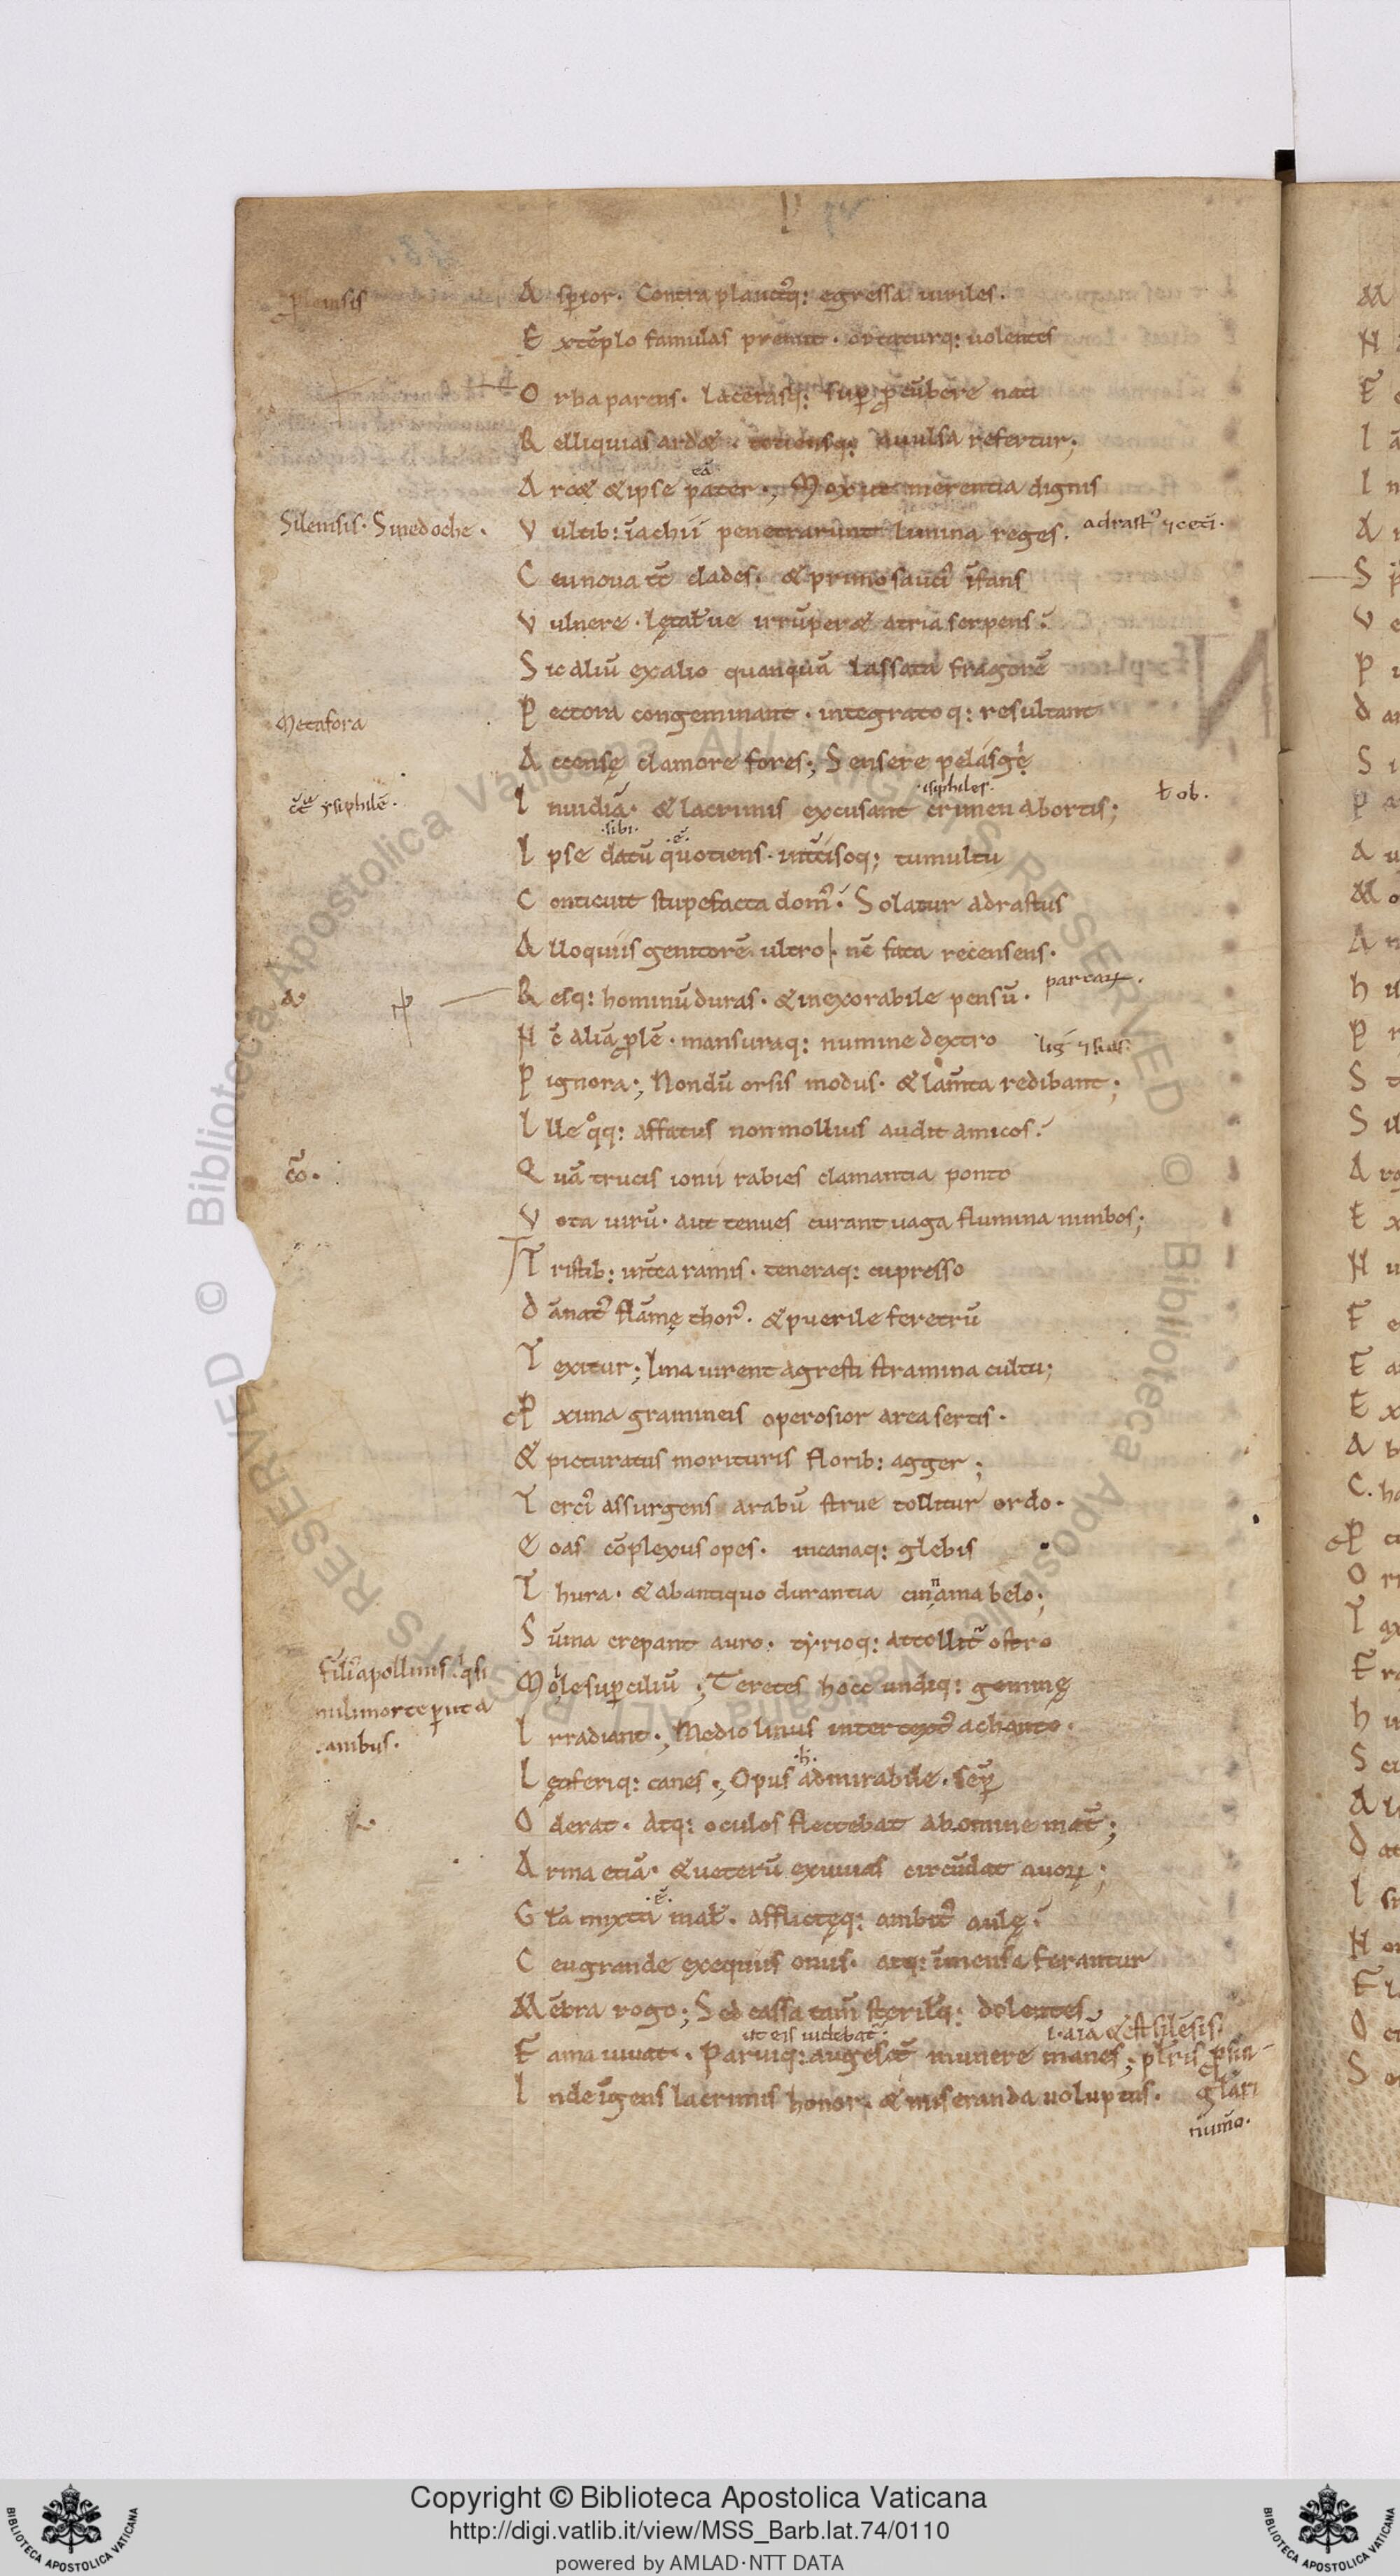 plemsis
A sp̄ior. Contra planctꝰq: egressa uiriles.
E xtēplo famulas premit. optaturq: uolentes
O rba parens. lacerasq: sup ꝓcūbere nati
R elliquias ardæ. totiensq: auulsa refertur;
A rcæ & ipse pater; Mox ut merentia dignis
Silemsis. Sinedoche.
V ultib: īachii penetrarunt limina reges. adrastꝰ ⁊ ceti.
C eu noua tc̄ clades. & primo saucꝰ īfans
V ulnere. lętał ue irrūperæ atria serpens.
S ic aliū ex alio quanquā lassata fragorē
Metafora
P ectora congeminant. integratoq: resultant
A ccensę clamore fores; Sensere pelasgę
isiphiles.
c̄c̄ ysiphilē.
I nuidiā. & lacrimis excusant crimen abortis; ł ob.
.sibi. .ē.
I pse datū quotiens. int̄cisoq; tumultu
C onticuit stupefacta domꝰ. Solatur adrastus
A lloquiis genitorē ultro. nc̄ fata recensens.
parcaꝝ.
R esq: hominū duras. & inexorabile pensū.
N c̄ aliā ꝓlē. mansuraq: numine dextro
P ignora; Nondū orsis modus. & lam̄ta redibant;
I lle qͦq: affatus non mollius audit amicos.
c̄o.
Q uā trucis ionii rabies clamantia ponto
V ota uirū. aut tenues curant uaga flumina nimbos;
T ristib: int̄ea ramis. teneraq: cupresso
D ānatꝰ flāmę thorꝰ. & puerile feretrū
T exitur; Ima uirent agresti stramina cultu;
P xima gramineis operosior area sertis.
& picturatus morituris florib: agger;
T ercꝰ assurgens arabū strue tollitur ordo.
E oas cōplexus opes. incanaq: glebis
T hura. & ab antiquo durantia cinnama belo;
S ūma crepant auro. tyrioq: attollit̄ ostro
filiꝰ apollinis. qsi
M ole supciliū; Teretes hoc undiq: gemmę
nili morte putā
I rradiant; Medio linus intertextꝰ achanto.
.canibus.
.h.
L ętoferiq: canes; Opus admirabile. semp
O derat. Atq: oculos flectebat ab omine mat̄;
A rma etiā. & ueterū exuuias circūdat auoꝝ;
.ē.
G ła mixta mał. afflictęq: ambitꝰ aulę.
C eu grande exequiis onus. atq: īmensa ferantur
M ēbra rogo; Sed cassa tam̄ sterilꝰq: dolentes
ut eis uidebat̄.
F ama iuuat. Paruiq: augescūt munere manes;
I nde īgens lacrimis honor. & miseranda uoluptas.
num̄o.